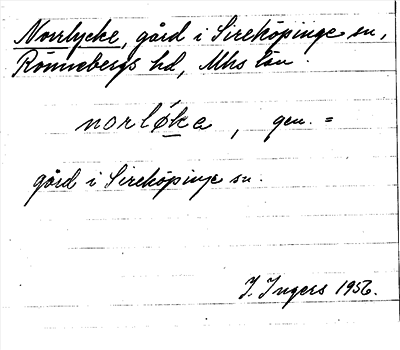 Norrlycke, gård i Sireköpinge sn,
Rönnebergs hd, Mhs län.
norløka, gen. =
gård i Sireköpinge sn.
I. Ingers 1956.